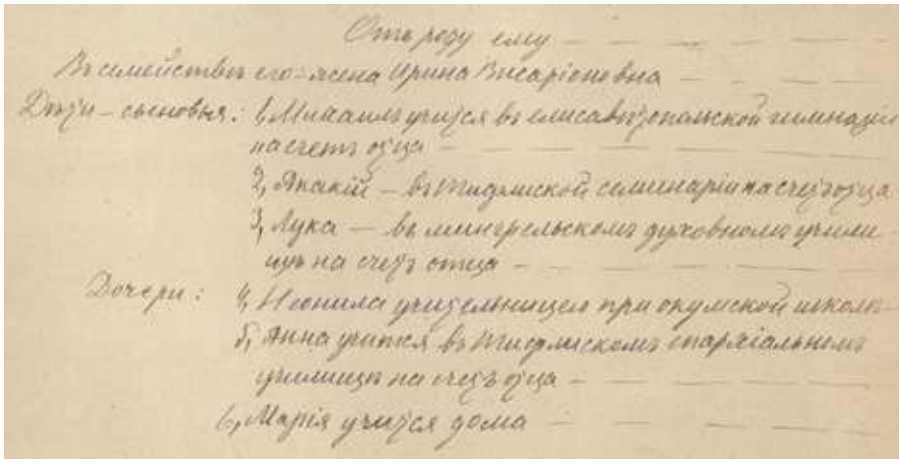 Отъ роду ему — — — — — —
Въ семействѣ его: жена Ирина Висаріоновна — — —
Дѣти – сыновья: 1, Михаилъ учится въ елисаветопольской гимназіи
на счетъ отца — — — — — —
2, Акакій – въ тифлиской семинаріи на счетъ отца
3, Лука — въ мингрельскомъ духовномъ учили-
щѣ на счетъ отца — — — — —
Дочери: 4, Неонила учительницей при окумской школѣ —
5, Анна учится въ тифлискомъ епархіальномъ
училищѣ на счетъ отца — — — — —
6, Марія учится дома — — — — —